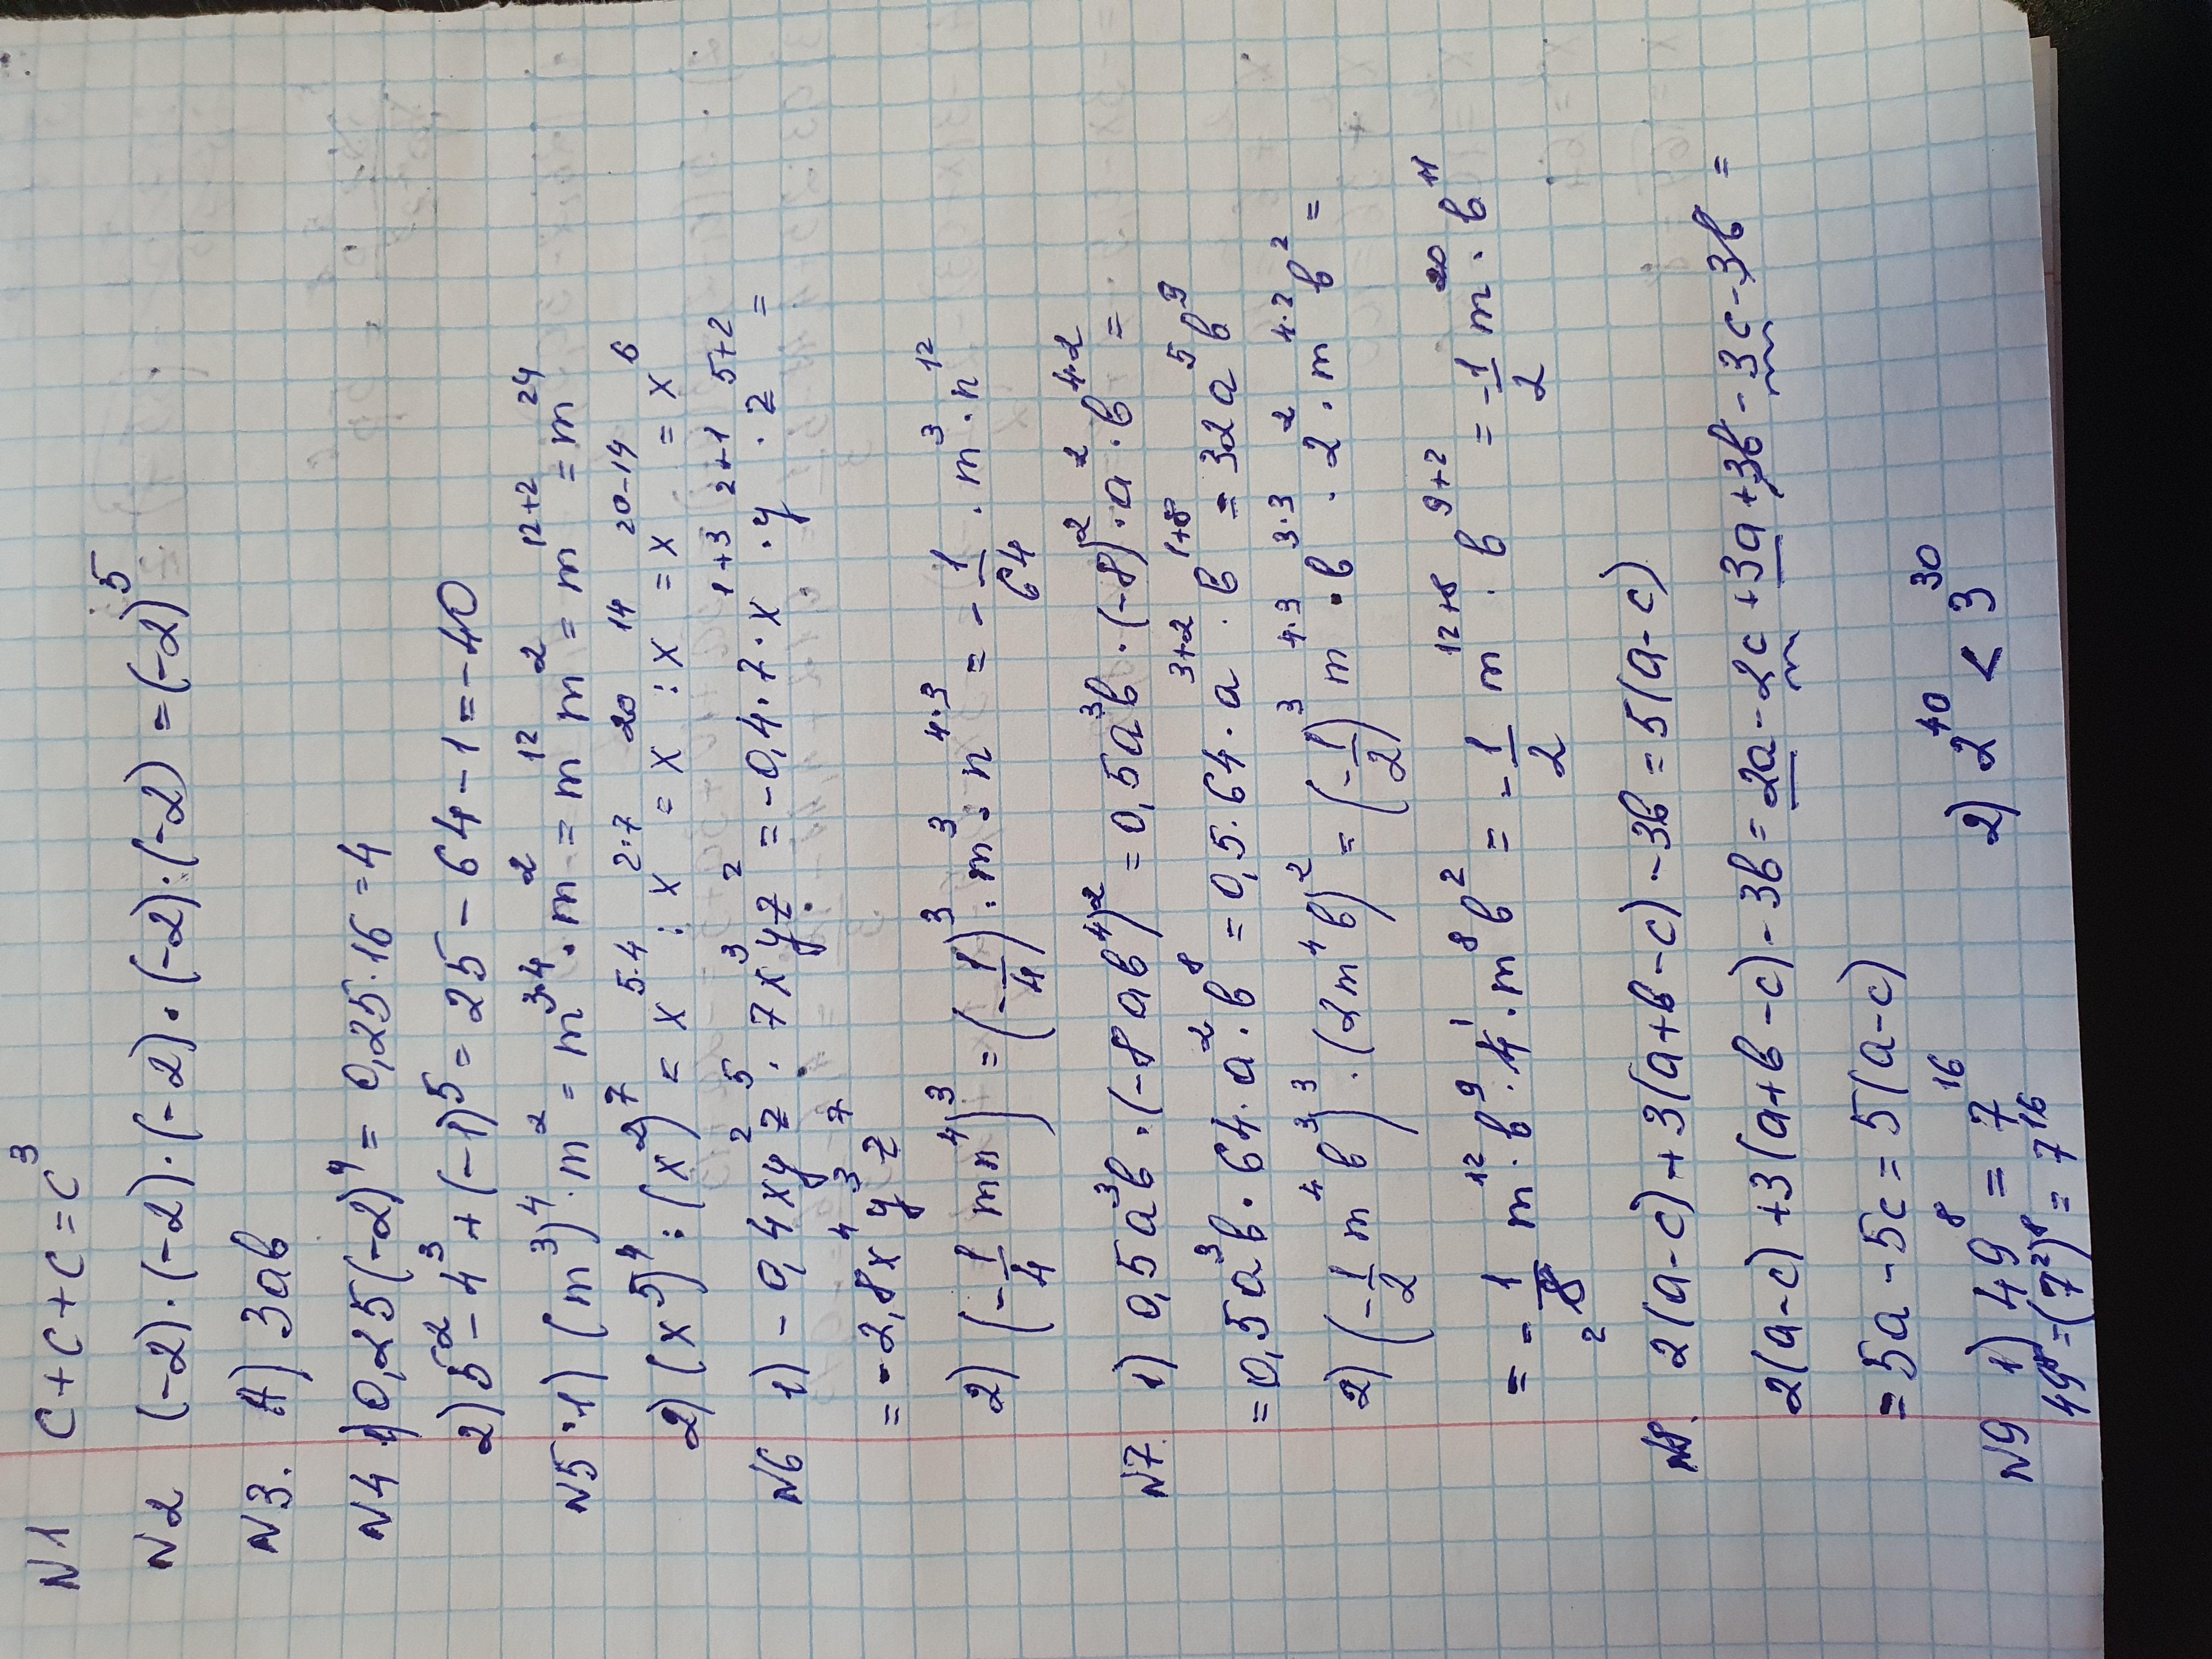 N1 c+c+c=c³
N2 (-2)·(-2)·(-2)·(-2)·(-2) = (-2)⁵
N3. А) 3ab
N4 1) 0,25(-2)⁴ = 0,25·16 = 4
2) 5² - 4³ + (-1)⁵ = 25 - 64 - 1 = -40
N5 1) (m³)⁴·m² = m³·⁴·m² = m¹² m² = m¹²⁺² = m²⁴
2) (x⁵)⁴ : (x²)⁷ = x⁵·⁴ : x²·⁷ = x²⁰ : x¹⁴ = x²⁰⁻¹⁴ = x⁶
N6 1) -0,4xy²z⁵ · 7x³yz² = -0,4·7·x¹⁺³·y²⁺¹·z⁵⁺² =
= -2,8x⁴y³z⁷
2) (-1/4 mn⁴)³ = (-1/4)³·m³·n⁴·³ = -1/64·m³·n¹²
N7. 1) 0,5a³b·(-8ab⁴)² = 0,5a³b·(-8)²·a²·b⁴·² =
= 0,5a³b·64·a²·b⁸ = 0,5·64·a³⁺²·b¹⁺⁸ = 32a⁵b⁹
2) (-1/2 m⁴b³)³·(2m⁴b)² = (-1/2)³ m⁴·³·b³·³·2²·m⁴·²b² =
= -1/8 2 m¹²·b⁹·4¹·m⁸b² = -1/2 m¹²⁺⁸·b⁹⁺² = -1/2 m²⁰·b¹¹
N8. 2(a-c)+3(a+b-c)-3b = 5(a-c)
2(a-c)+3(a+b-c)-3b = 2a-2c+3a+3b-3c-3b =
= 5a-5c = 5(a-c)
N9 1) 49⁸ = 7¹⁶ 2) 2⁴⁰ < 3³⁰
49⁸=(7²)⁸ = 7¹⁶